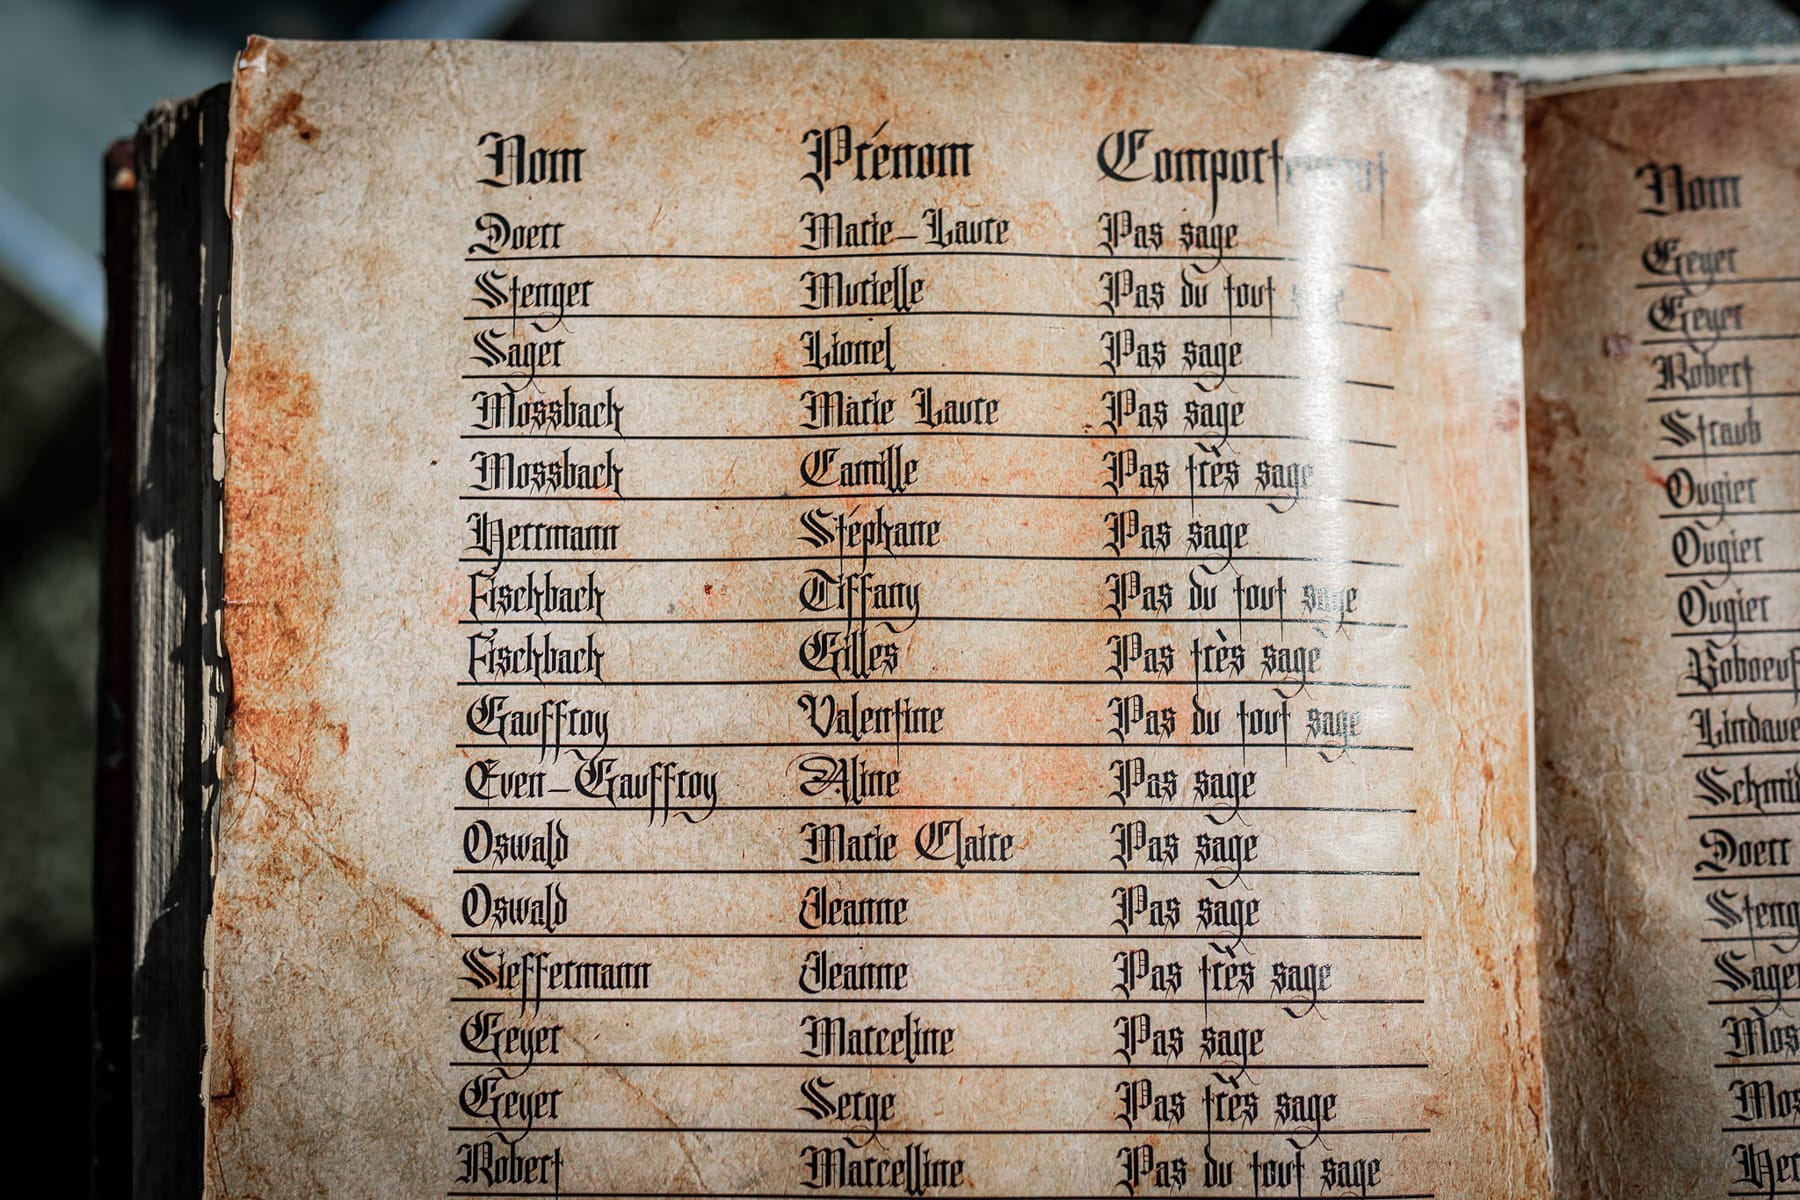 Nom Prénom Comportement
Doerr Marie-Laure Pas sage
Stenger Murielle Pas du tout sage
Sager Lionel Pas sage
Mossbach Marie Laure Pas sage
Mossbach Camille Pas très sage
Herrmann Stéphane Pas sage
Fischbach Tiffany Pas du tout sage
Fischbach Gilles Pas très sage
Gauffroy Valentine Pas du tout sage
Even-Gauffroy Aline Pas sage
Oswald Marie Claire Pas sage
Oswald Jeanne Pas sage
Sieffermann Jeanne Pas très sage
Geyer Marceline Pas sage
Geyer Serge Pas très sage
Robert Marcelline Pas du tout sage
Nom
Geyer
Geyer
Robert
Straub
Ougier
Ougier
Ougier
Doerr